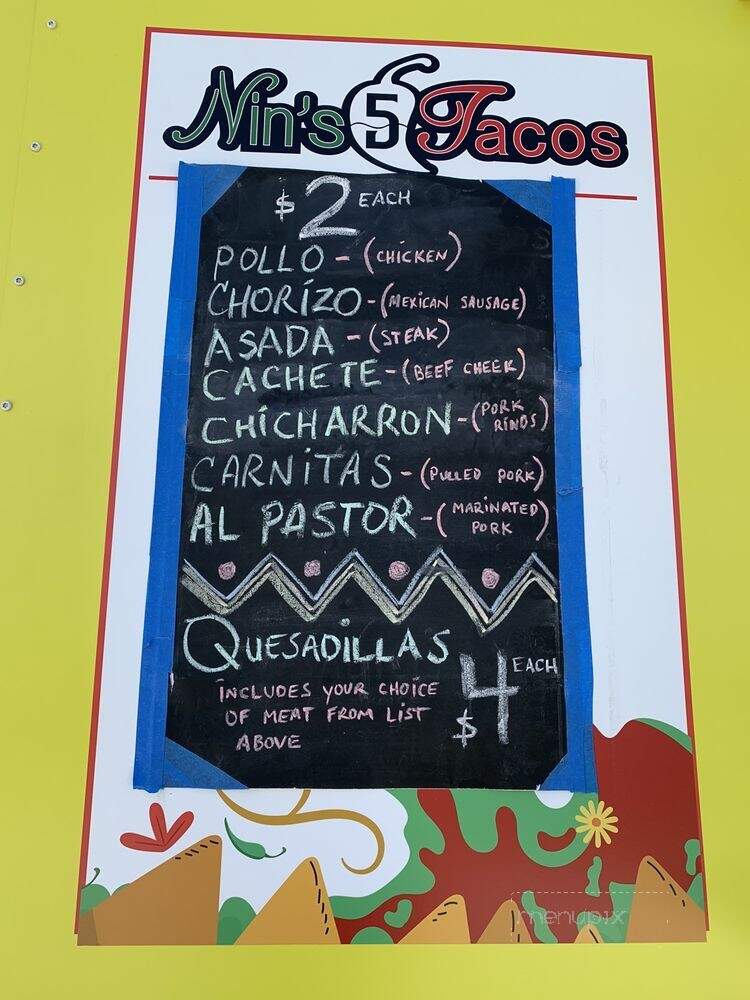 Nin's 5 Tacos
$2 EACH
POLLO - (CHICKEN)
CHORIZO - (MEXICAN SAUSAGE)
ASADA - (STEAK)
CACHETE - (BEEF CHEEK)
CHICHARRON - (PORK RINDS)
CARNITAS - (PULLED PORK)
AL PASTOR - (MARINATED PORK)
QUESADILLAS
$4 EACH
INCLUDES YOUR CHOICE
OF MEAT FROM LIST
ABOVE
menupix